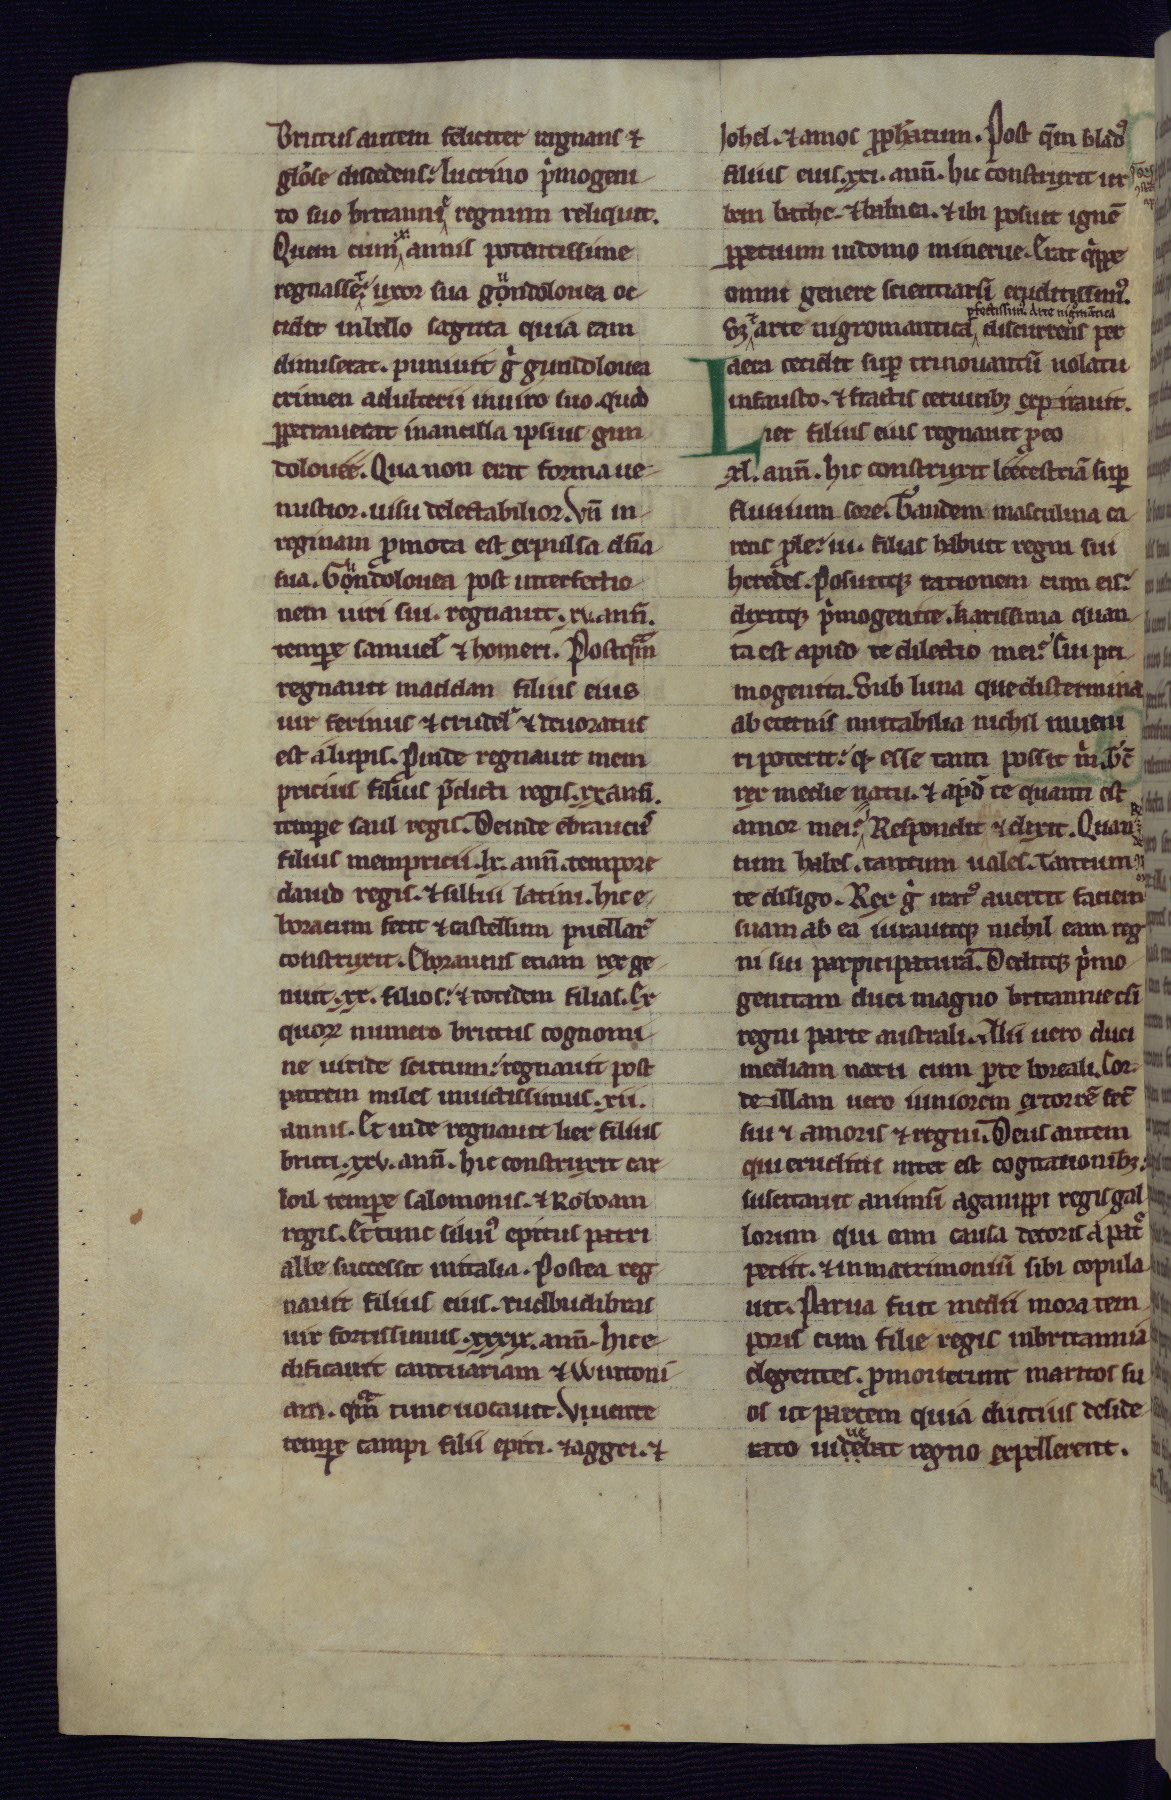 Brutus autem feliciter regnans ⁊
gl̄ose discedens: lucrino p̓mogeni
to suo britanni regnum reliquit.
Quem cum .x. annis potentissime
regnasset: uxor sua gundolouea oc
cidit in bello sagitta quia eam
dimiserat. puniuit g̓ gundolouea
crimen adulterii in uiro suo. quod
ꝑpetrauerat in ancilla ipsius gun
dolouee. Qua non erat forma ue
nustior. uisu delectabilior. Vn̄ in
reginam ꝓmota est expulsa dn̄a
sua. Gundolouea post interfectio
nem uiri sui. regnauit .xv. ann̄.
tempore samuel ⁊ homeri. Postq̄m
regnauit maddan filius eius
uir ferinus ⁊ crudel̓ ⁊ deuoratus
est a lupis. Proinde regnauit mem
pricius filius p̄dicti regis .xx. ann̄.
tempore saul regis. Deinde ebraucus
filius mempricii .lx. ann̄. tempore
dauid regis. ⁊ siluii latini. hic e
boracum fecit ⁊ castellum puellar̄
construxit. Eboraucus etiam rex ge
nuit .xx. filios: ⁊ totidem filias. Ex
quoꝝ numero brutus cognomi
ne uiride scutum: regnauit post
patrem miles inuictissimus .xii.
annis. Et inde regnauit lier filius
bruti .xxv. ann̄. hic construxit car
loil tempore salomonis. ⁊ Roboam
regis. Et tunc siluius epitus patri
albe successit in italia. Postea reg
nauit filius eius. rudbudibras
uir fortissimus .xxxix. ann̄. hic e
dificauit cantuariam ⁊ Wintoni
am. q̄m tunc uocauit. Viuente
tempore campi filii epiti. ⁊ aggei. ⁊
Johel. ⁊ amos ꝓph̄arum. Post q̄m blad̓
filius eius .xxi. ann̄. hic construxit ur
bem bathe. ⁊ balnea. ⁊ ibi posuit ignē
ꝑpetuum in domo minerue. Erat q̓ppe
omni genere scientiarū eruditissim̓.
perfectissim̓ arte nigromantica
arte nigromantica discurrens per
aera cecidit sup trinouantū uolatu
infausto. ⁊ fractis ceruicibꝫ expirauit.
Liet filius eius regnauit ꝓ eo
.xl. ann̄. hic construxit leecestriā sup
fluuium sore. Tandem masculina ca
rens ꝓle: iii. filias habuit regni sui
heredes. Posuitqꝫ rationem cum eis:
dixitqꝫ p̓mogenite. karissima quan
ta est apud te dilectio mei: Cui pri
mogenita. Sub luna que distermina
ab eternis mutabilia nichil inueni
ri poterit: qd̄ esse tanti possit m̓.
rex medie natu. ⁊ apud te quanti est
amor mei: Respondit ⁊ dixit. Quan
tum habes. tantum uales. Tantum
te diligo. Rex g̓ irat̓ auertit faciem
suam ab ea iurauitqꝫ nichil eam reg
ni sui parpicipaturā. Deditqꝫ p̓mo
genitam duci magno britannie cū
regni parte australi. Alii uero duci
mediam natu cum parte boreali. Cor
deillam uero iuniorem exortē fec̄
sui ⁊ amoris ⁊ regni. Deus autem
qui eruditii inter est cogitationibꝫ:
suscitauit animū aganippi regis gal
lorum qui eam causa decoris a patre
petiit. ⁊ in matrimoniū sibi copula
uit. Parua fuit medii mora tem
poris cum filie regis in britannia
degentes. ꝓmouerunt maritos su
os ut patrem quia diutius deside
rato uiuebat regno expellerent.